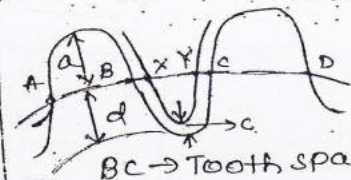 a
A B X Y C D
d
C
BC → Tooth spa